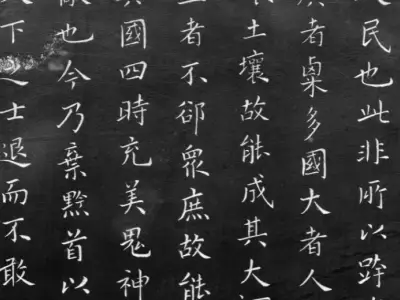 民也此非所以跨
廣者粟多國大者人
土壤故能成其大
王者不郤眾庶故能
國四時充美鬼神
敵也今乃棄黔首以
天下之士退而不敢